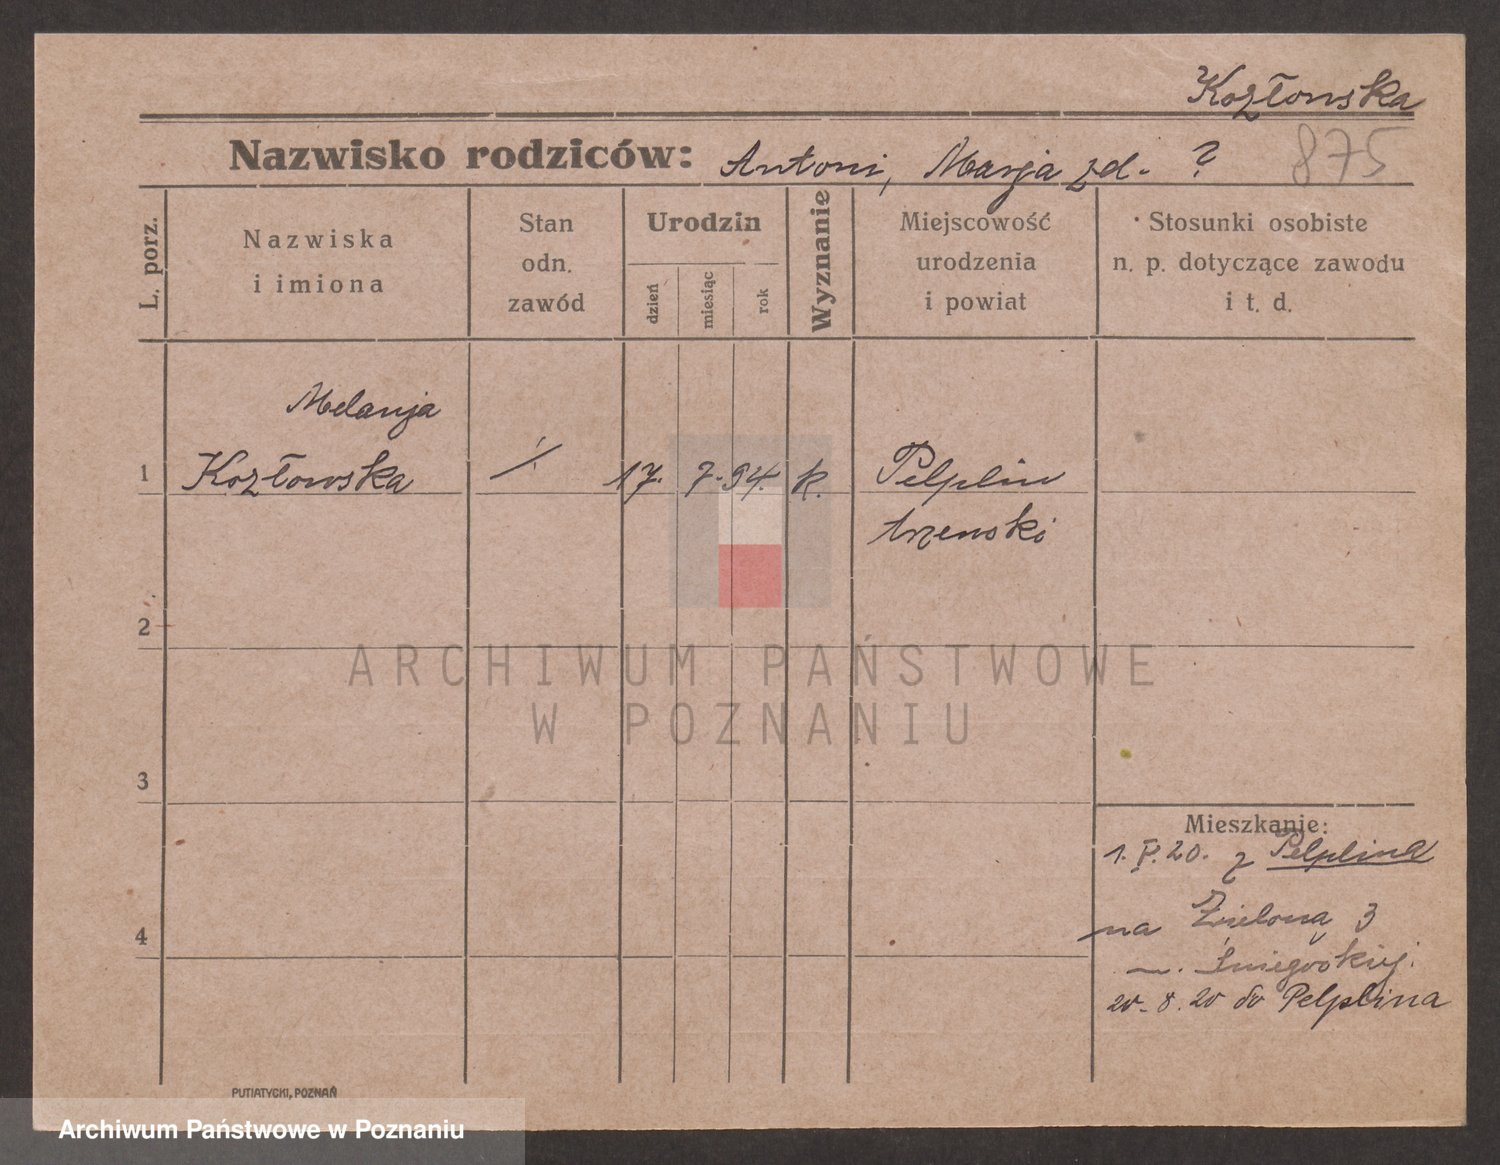 Kozłowska
Nazwisko rodziców: Antoni, Marja zd. ?
875
L. porz.
Nazwiska
i imiona
Stan
odn.
zawód
Urodzin
dzień
miesiąc
rok
Wyznanie
Miejscowość
urodzenia
i powiat
Stosunki osobiste
n. p. dotyczące zawodu
i t. d.
Melanja
1 Kozłowska 17. 7. 94. k. Pelplin
2
ARCHIWUM PAŃSTWOWE
W POZNANIU
3
Mieszkanie:
1. 20. z Pelplina
na Zieloną 3
4
20. 8. 20 do Pelplina
PUTIATYCKI, POZNAŃ
Archiwum Państwowe w Poznaniu